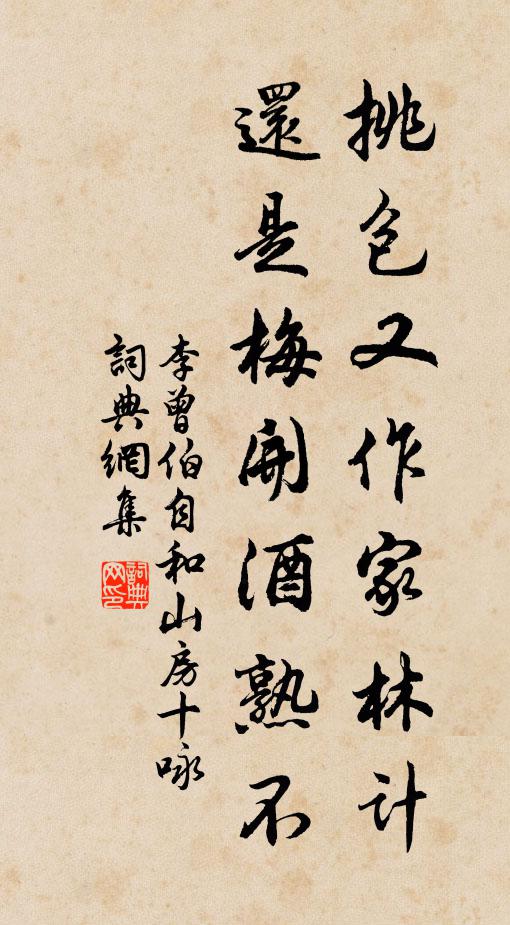 挑包又作家林計
還是梅開酒熟不
李曾伯自和山房十咏
詞典網集
詞典网印